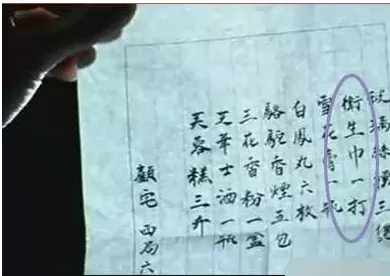 玻璃絲襪三
衛生巾一打
雪花膏一瓶
白鳳丸六枚
駱駝香煙五包
三花香粉一盒
艾華士酒一瓶
芙蓉糕三斤
顧宅 西局六